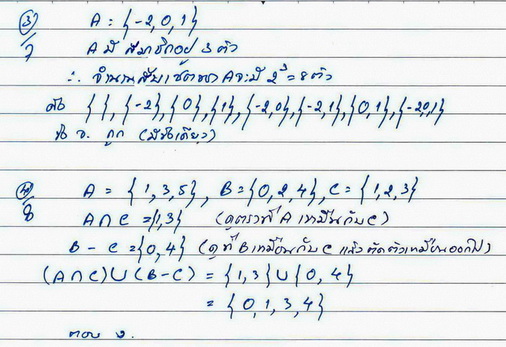 ③/7 A = {-2, 0, 1}
A มี สมาชิกอยู่ 3 ตัว
∴ จำนวนสับเซตของ A จะมี 2³ = 8 ตัว
คือ { }, {-2}, {0}, {1}, {-2,0}, {-2,1}, {0,1}, {-2,0,1}
ข้อ ง. ถูก (มีข้อเดียว)
④/8 A = {1,3,5}, B = {0,2,4}, C = {1,2,3}
A∩C = {1,3} (ดูตรงที่ A เหมือนกับ C)
B - C = {0,4} (ดูที่ B เหมือนกับ C แล้วตัดตัวเหมือนออกไป)
(A∩C)∪(B-C) = {1,3}∪{0,4}
= {0,1,3,4}
ตอบ ง.